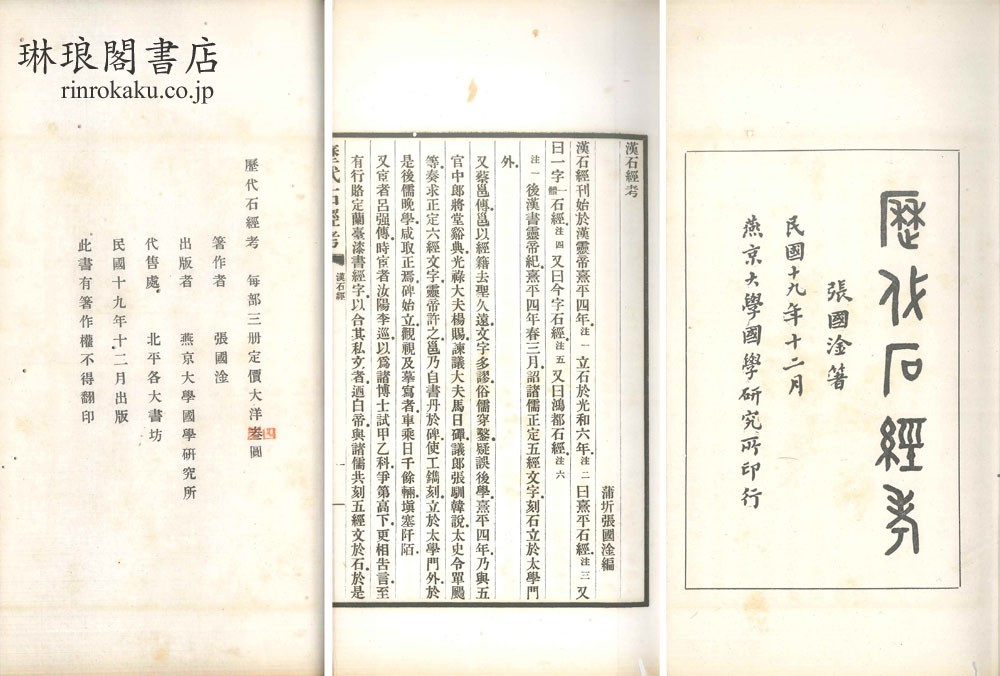 琳琅閣書店
rinrokaku.co.jp
歷代石經考
張國淦著
民國十九年十二月
燕京大學國學研究所印行
漢石經考
蒲圻張國淦編
漢石經刊始於漢靈帝熹平四年注一立石於光和六年注二曰熹平石經注三又
曰一字一體石經注四又曰今字石經注五又曰鴻都石經注六
注一後漢書靈帝紀熹平四年春三月詔諸儒正定五經文字刻石立於太學門
外
又蔡邕傳邕以經籍去聖久遠文字多謬俗儒穿鑿疑誤後學熹平四年乃與五
官中郎將堂谿典光祿大夫楊賜諫議大夫馬日磾議郎張馴韓說太史令單颺
等奏求正定六經文字靈帝許之邕乃自書丹於碑使工鐫刻立於太學門外於
是後儒晚學咸取正焉碑始立觀視及摹寫者車乘日千餘輛塡塞阡陌
又宦者呂强傳時宦者汝陽李巡以爲諸博士試甲乙科爭第高下更相告言至
有行賂定蘭臺漆書經字以合其私文者迺白帝與諸儒共刻五經文於石於是
歷代石經考 漢石經 一
歷代石經考 每部三册定價大洋 圓
著作者 張國淦
出版者 燕京大學國學研究所
代售處 北平各大書坊
民國十九年十二月出版
此書有著作權不得翻印